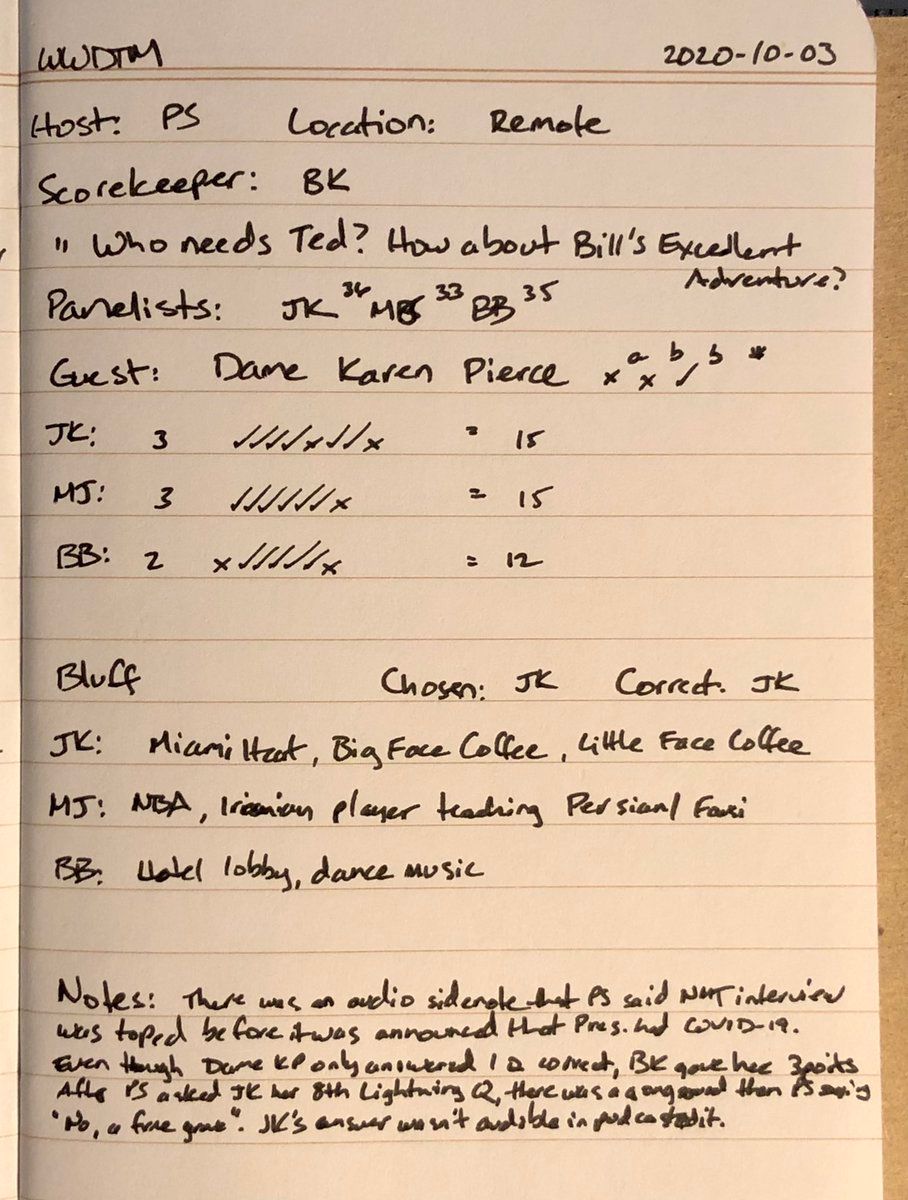 WWDTM 2020-10-03
Host: PS Location: Remote
Scorekeeper: BK
" Who needs Ted? How about Bill's Excellent
Adventure?
Panelists: JK 34 33 BB 35
Guest: Dame Karen Pierce x a x b ✓ b *
JK: 3 ✓✓✓✓x✓✓x = 15
MJ: 3 ✓✓✓✓✓✓x = 15
BB: 2 x✓✓✓✓✓x = 12
Bluff Chosen: JK Correct. JK
JK: Miami Heat, Big Face Coffee, Little Face Coffee
MJ: NBA, Iranian player teaching Persian/
BB: Hotel lobby, dance music
Notes: There was an audio sidenote that PS said NMJ interview
was taped before it was announced that Pres. had COVID-19.
Even though Dame KP only answered 1 Q correct, BK gave her 3 points
After PS asked JK her 8th Lightning Q, there was a gong sound then PS saying
"No, a grave". JK's answer wasn't audible in podcast edit.